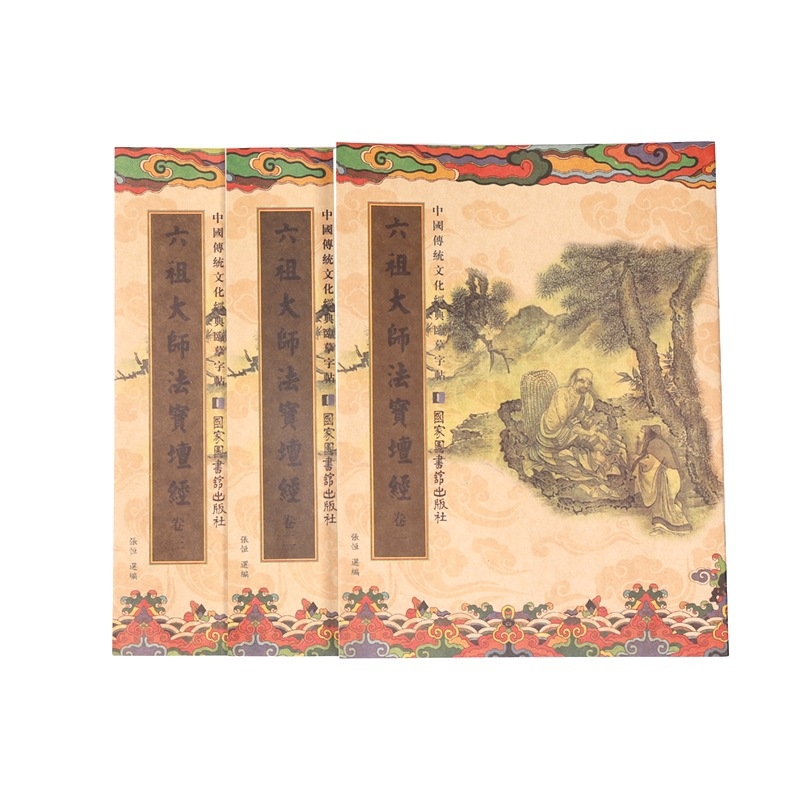 六祖大師法寶壇經 卷一
中國傳統文化經典臨摹字帖
國家圖書館出版社
張恒 選編
六祖大師法寶壇經 卷二
中國傳統文化經典臨摹字帖
國家圖書館出版社
張恒 選編
六祖大師法寶壇經 卷三
中國傳統文化經典臨摹字帖
國家圖書館出版社
張恒 選編